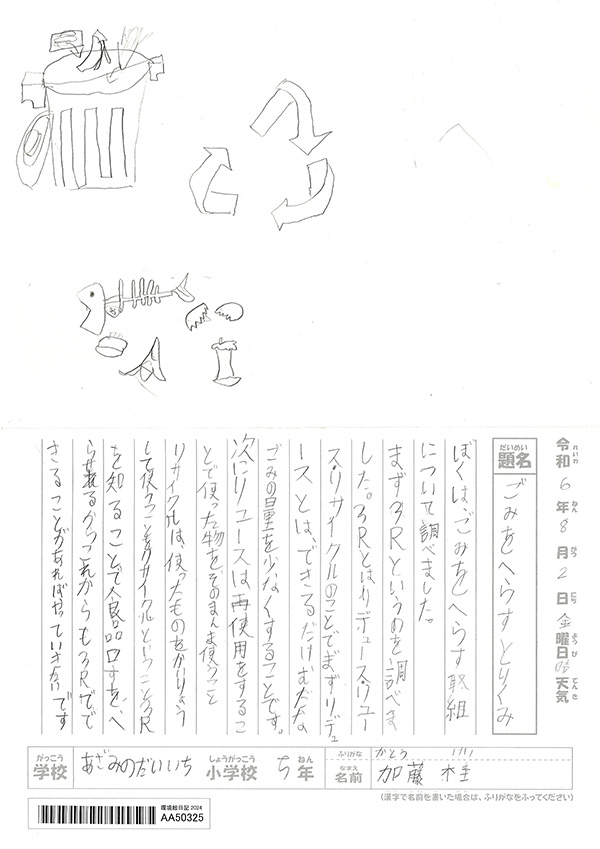 令和6年8月2日金曜日 天気
れいわ ねん がつ にち ようび てんき
だいめい
題名 ごみをへらすとりくみ
ぼくはごみをへらす取組
について調べました。
まず3Rというのを調べま
した。3Rとはリデュース・リユー
ス・リサイクルのことでまずリデュ
ースとは、できるだけむだな
ごみの量を少なくすることです。
次にリユースは再使用をするこ
とで使った物を、そのまんま使うこと
リサイクルは、使ったものをかりょう
して使うことをリサイクルということ3R
を知ることで食品ロスを、へ
らせれるからこれからも3Rがで
きることがあればやっていきたいです
がっこう しょうがっこう ねん
学校 あざみのだいいち 小学校 ち年
ふりがな かとう けい
なまえ
名前 加藤 桂
(漢字で名前を書いた場合は、ふりがなをふってください)
環境絵日記 2024
AA50325